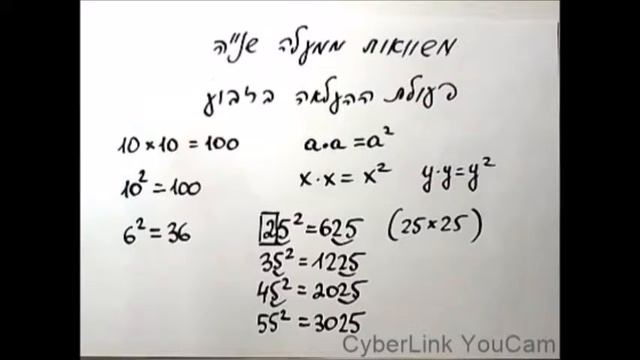 משוואות ממעלה שנ"יה
פעולת ההעלאה בריבוע
10×10=100
a·a=a²
10²=100
x·x=x²
y·y=y²
6²=36
25²=625 (25×25)
35²=1225
45²=2025
55²=3025
CyberLink YouCam